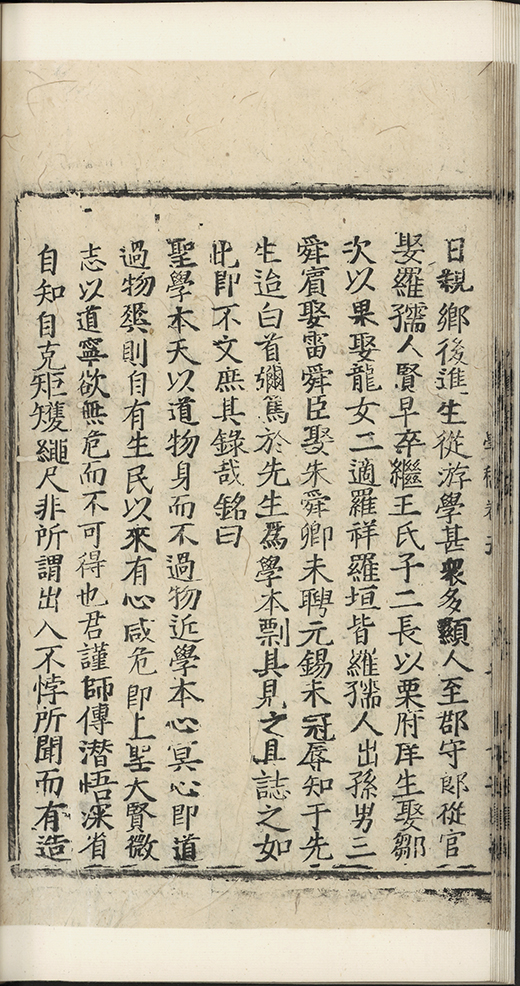 日親鄉後進生從游學甚衆多顯人至郡守郎從官
娶羅孺人賢早卒繼王氏子二長以栗府庠生娶鄒
次以果娶龍女二適羅祥羅垣皆羅孺人出孫男三
舜賓娶雷舜臣娶朱舜卿未聘元錫未冠辱知于先
生迨白首彌篤於先生爲學本剽其見之且誌之如
此即不文庶其錄哉銘曰
聖學本天以道物身而不過物近學本心冥心即道
過物奚則自有生民以來有心咸危即上聖大賢微
志以道寧欲無危而不可得也君謹師傳潛悟深省
自知自克矩矱繩尺非所謂出入不悖所聞而有造